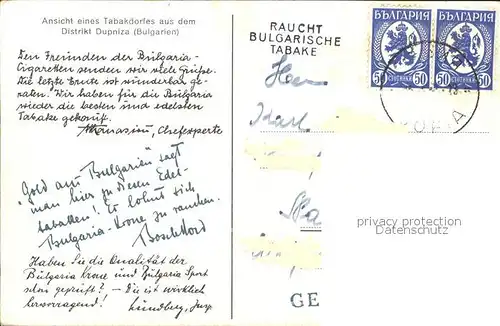 Ansicht eines Tabakdorfes aus dem
Distrikt Dupniza (Bulgarien)
Den Freunden der Bulgaria-
Cigaretten senden wir viele Grüsse.
Die letzte Ernte ist wunderbar ge-
raten. Wir haben für die Bulgaria
wieder die besten und edelsten
Tabake gekauft.
Athanasiu, Chefexperte
"Gold aus Bulgarien" sagt
man hier zu diesen Edel-
tabaken! Es lohnt sich
Bulgaria-Krone zu rauchen.
Haben Sie die Qualität der
Bulgaria Krone und Bulgaria Sport
schon geprüft? - Die ist wirklich
hervorragend! Lundberg,
RAUCHT
BULGARISCHE
TABAKE
БЪЛГАРИЯ БЪЛГАРИЯ
50 СТОТИНКИ 50 50 СТОТИНКИ 50
Herr
Karl
privacy protection
Datenschutz
GE